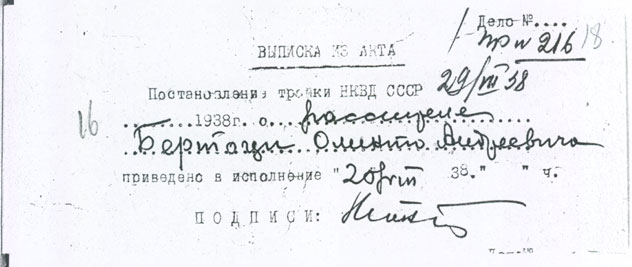 Дело №....
пр № 216 18
ВЫПИСКА ИЗ АКТА
Постановление тройки НКВД СССР 29/III 38
16 ........1938г. о....расстреле
Бертаци Олинто Андреевича
приведено в исполнение " 38." " ч.
ПОДПИСИ: